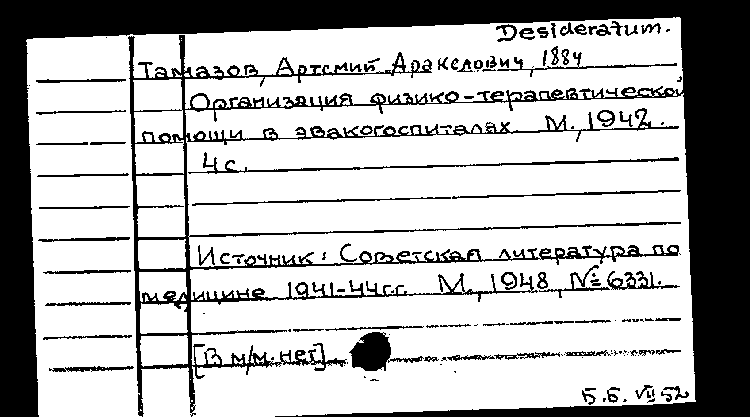 Desideratum.
Тамазов, Артемий Аракелович, 1884
Организация физико-терапевтической
помощи в эвакогоспиталях М., 1942.
4с.
Источник: Советская литература по
медицине 1941-44гг. М., 1948, №6331.
[В м/м. нет]
Б.Б. VII 52